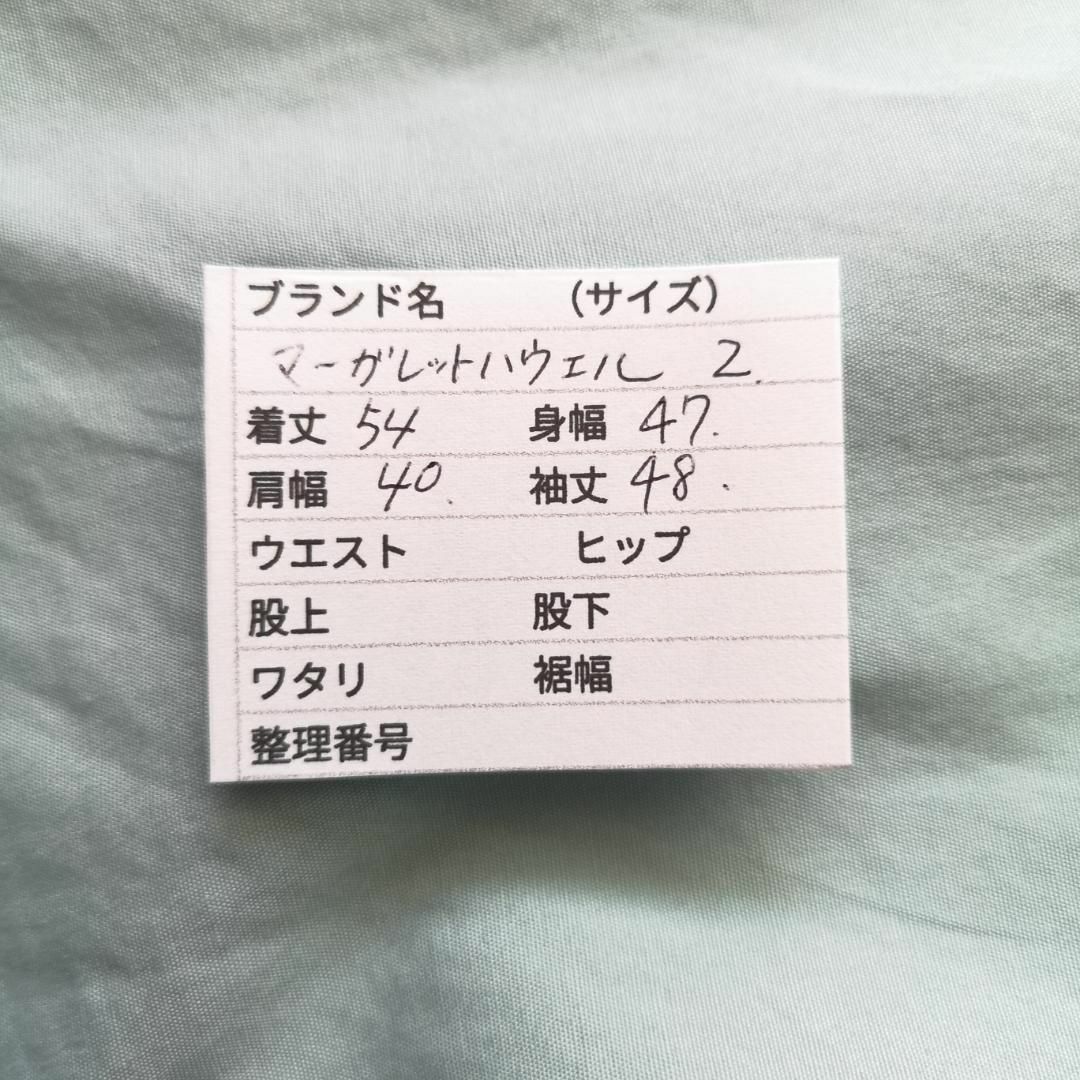 ブランド名 （サイズ）
マーガレットハウエル 2.
着丈 54 身幅 47.
肩幅 40. 袖丈 48.
ウエスト ヒップ
股上 股下
ワタリ 裾幅
整理番号